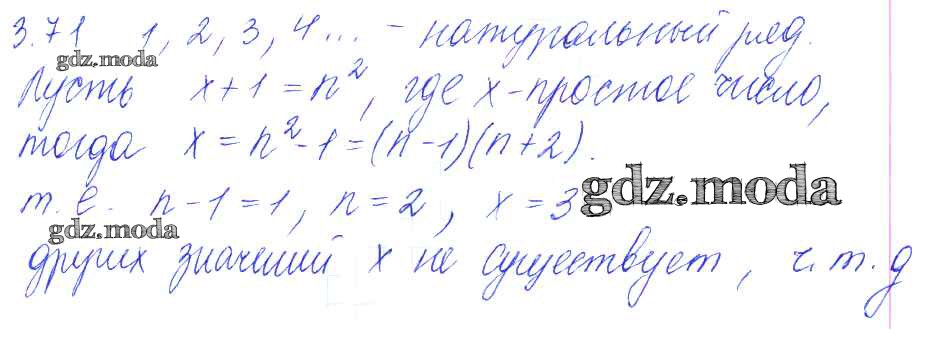 3.71 1, 2, 3, 4... - натуральный ряд.
gdz.moda
Пусть x+1=n², где x-простое число,
тогда x=n²-1=(n-1)(n+2).
gdz.moda
т.е. n-1=1, n=2, x=3
gdz.moda
других значений x не существует, ч.т.д